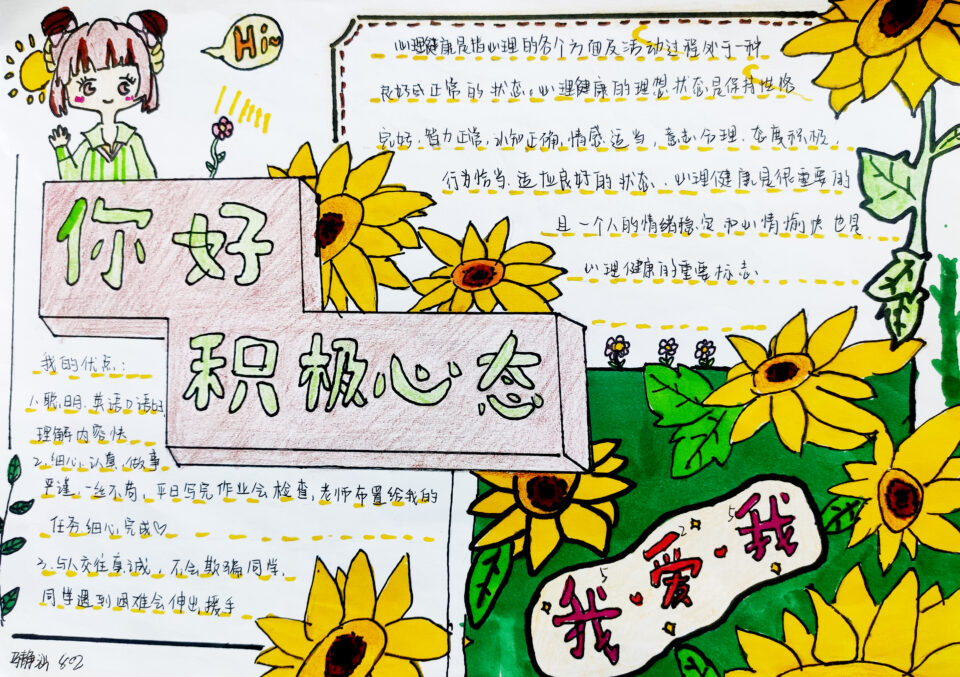 Hi~
你好
积极心态
心理健康是指心理的各个方面及活动过程处于一种
良好或正常的状态。心理健康的理想状态是保持性格
完好、智力正常，认知正确，情感适当，意志合理、态度积极，
行为恰当、适应良好的状态、心理健康是很重要的
且一个人的情绪稳定和心情愉快也是
心理健康的重要标志
我的优点：
1、聪明、英语口语的
理解内容快
2、细心、认真，做事
严谨，一丝不苟，平日写完作业会检查，老师布置给我的
任务，细心完成♡
3、与人交往真诚，不会欺骗同学，
同学遇到困难会伸出援手
我·爱·我
402